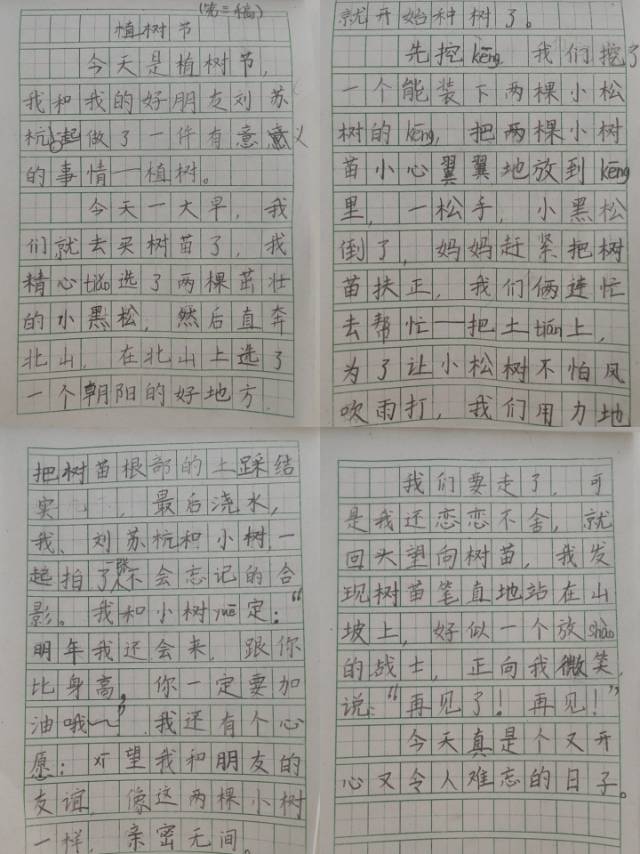 (第三稿)
植树节
今天是植树节,
我和我的好朋友刘苏
杭一起做了一件有意义
的事情——植树。
今天一大早,我
们就去买树苗了,我
精心tiāo选了两棵茁壮
的小黑松,然后直奔
北山,在北山上选了
一个朝阳的好地方
就开始种树了。
先挖kēng 我们挖了
一个能装下两棵小松
树的kēng,把两棵小树
苗小心翼翼地放到kēng
里,一松手,小黑松
倒了,妈妈赶紧把树
苗扶正,我们俩连忙
去帮忙——把土tián上,
为了让小松树不怕风
吹雨打,我们用力地
把树苗根部的土踩结
实,最后浇水,
我、刘苏杭和小树,一
起拍了张不会忘记的合
影。我和小树yuē定:“
明年我还会来,跟你
比身高,你一定要加
油哦~”我还有个心
愿:希望我和朋友的
友谊 像这两棵小树
一样,亲密无间。
我们要走了,可
是我还恋恋不舍,就
回头望向树苗,我发
现树苗笔直地站在山
坡上,好似一个放shào
的战士,正向我微笑,
说:“再见了!再见!”
今天真是个又开
心又令人难忘的日子。